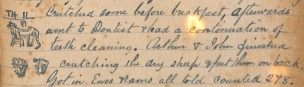 TH 11 Crutched some before breakfast, afterwards
went to Dentist & had a continuation of
teeth cleaning. Arthur & John finished
crutching the dry sheep & put them on back
Got in Ewes & rams all told counted 278.